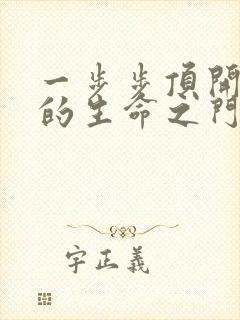 一步步頂開
的生命之門
字正義